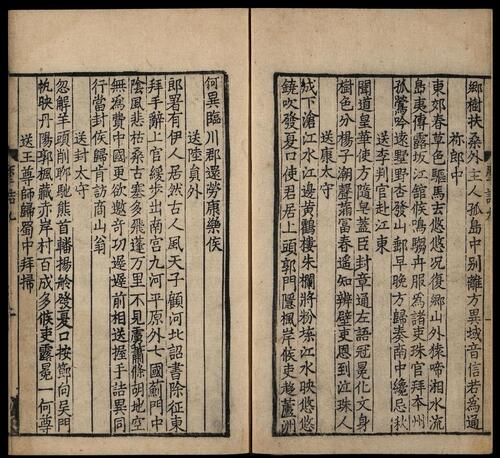 鄉樹扶桑外主人孤島中別離方異域音信若為通
祢郎中
東郊春草色驅馬去悠悠况復鄉山外猿啼湘水流
島夷傳露版江館候鳴騶卉服為諸吏珠官拜本州
孤鶯吟遠墅野杏發山郵早晚方歸奏南中纔忌秋
送李判官赴江東
聞道皇華使方隨皁蓋臣封章通左語冠冕化文身
樹色分楊子潮聲滿富春遥知辨璧吏恩到泣珠人
送康太守
城下滄江水江邊黃鶴樓朱欄將粉堞江水映悠悠
鐃吹發夏口使君居上頭郭門隱楓岸候吏趨蘆洲
何異臨川郡還勞康樂侯
送陸員外
郎署有伊人居然古人風天子顧河北詔書除征東
拜手辭上官緩步出南宮九河平原外七國薊門中
陰風悲枯桑古塞多飛蓬萬里不見虜蕭條胡地空
無為費中國更欲邀奇功遲遲前相送握手嗟異同
行當封侯歸肯訪商山翁
送封太守
忽解羊頭削聊馳熊首轓揚舲發夏口按節向吳門
帆映丹陽郭楓藏赤岸村百城多候吏露冕一何尊
送王尊師歸蜀中拜掃